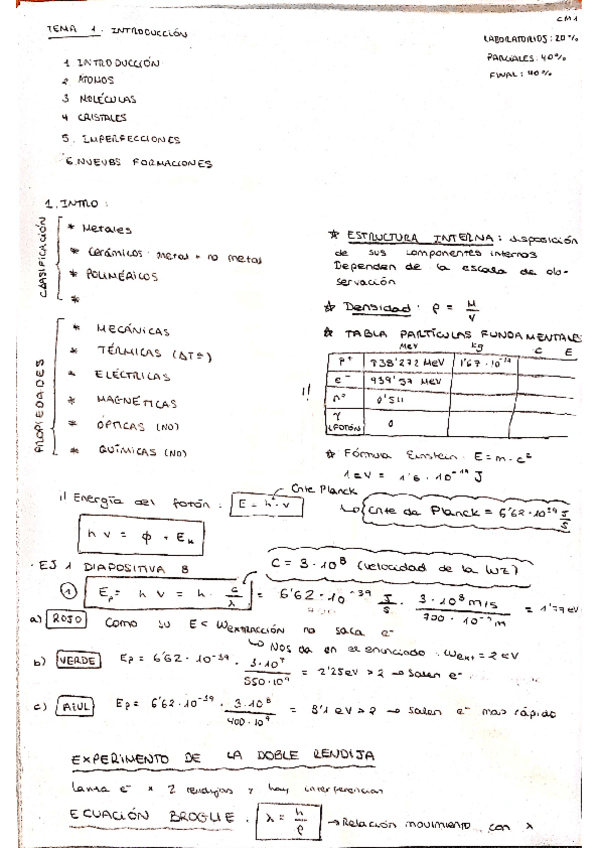 CM1
TEMA 1. INTRODUCCIÓN
LABORATORIOS: 20%
PARCIALES: 40%
FINAL: 40%
1 INTRODUCCIÓN
2 ÁTOMOS
3 MOLÉCULAS
4 CRISTALES
5. IMPERFECCIONES
6. NUEVAS FORMACIONES
1. INTRO:
CLASIFICACIÓN
* Metales
* Cerámicos: metal + no metal
* POLIMÉRICOS
*
PROPIEDADES
* MECÁNICAS
* TÉRMICAS
* ELÉCTRICAS
* MAGNÉTICAS
* ÓPTICAS (NO)
* QUÍMICAS (NO)
* ESTRUCTURA INTERNA: disposición
de sus componentes internos
Dependen de la escala de ob-
servación
* Densidad: ρ = M/V
* TABLA PARTÍCULAS FUNDAMENTALES
MeV kg C E
p+ 938'272 MeV
e- 939'57 MeV
n° 0'511
γ (FOTÓN) 0
* Fórmula Einstein: E = m·c²
1 eV = 1'6·10⁻¹⁹ J
Energía del fotón: E = h·ν
Cnte Planck
Cnte de Planck =
h ν = ϕ + Ek
EJ 1 DIAPOSITIVA 8
C = 3·10⁸ (velocidad de la luz)
① Ep = h ν = h · c/λ = 6'62·10⁻³⁹ J/s · 3·10⁸ m/s / = 1'77 eV
a) ROJO Como su E < Wextracción no saca e-
Nos da en el enunciado: Wext = 2 eV
b) VERDE Ep = 6'62·10⁻³⁹ · / = 2'25 eV > 2 → Salen e-
c) AZUL Ep = 6'62·10⁻³⁹ · 3·10⁸ / = 3'1 eV > 2 → salen e- más rápido
EXPERIMENTO DE LA DOBLE RENDIJA
Lanza e- x 2 rendijas y hay interferencias
ECUACIÓN BROGLIE: λ = h/ρ → Relación movimiento con λ